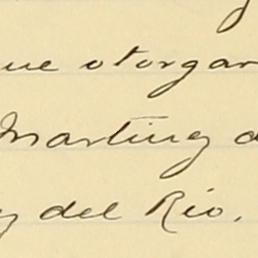 que otorgar
Martiny d
y del Rio.